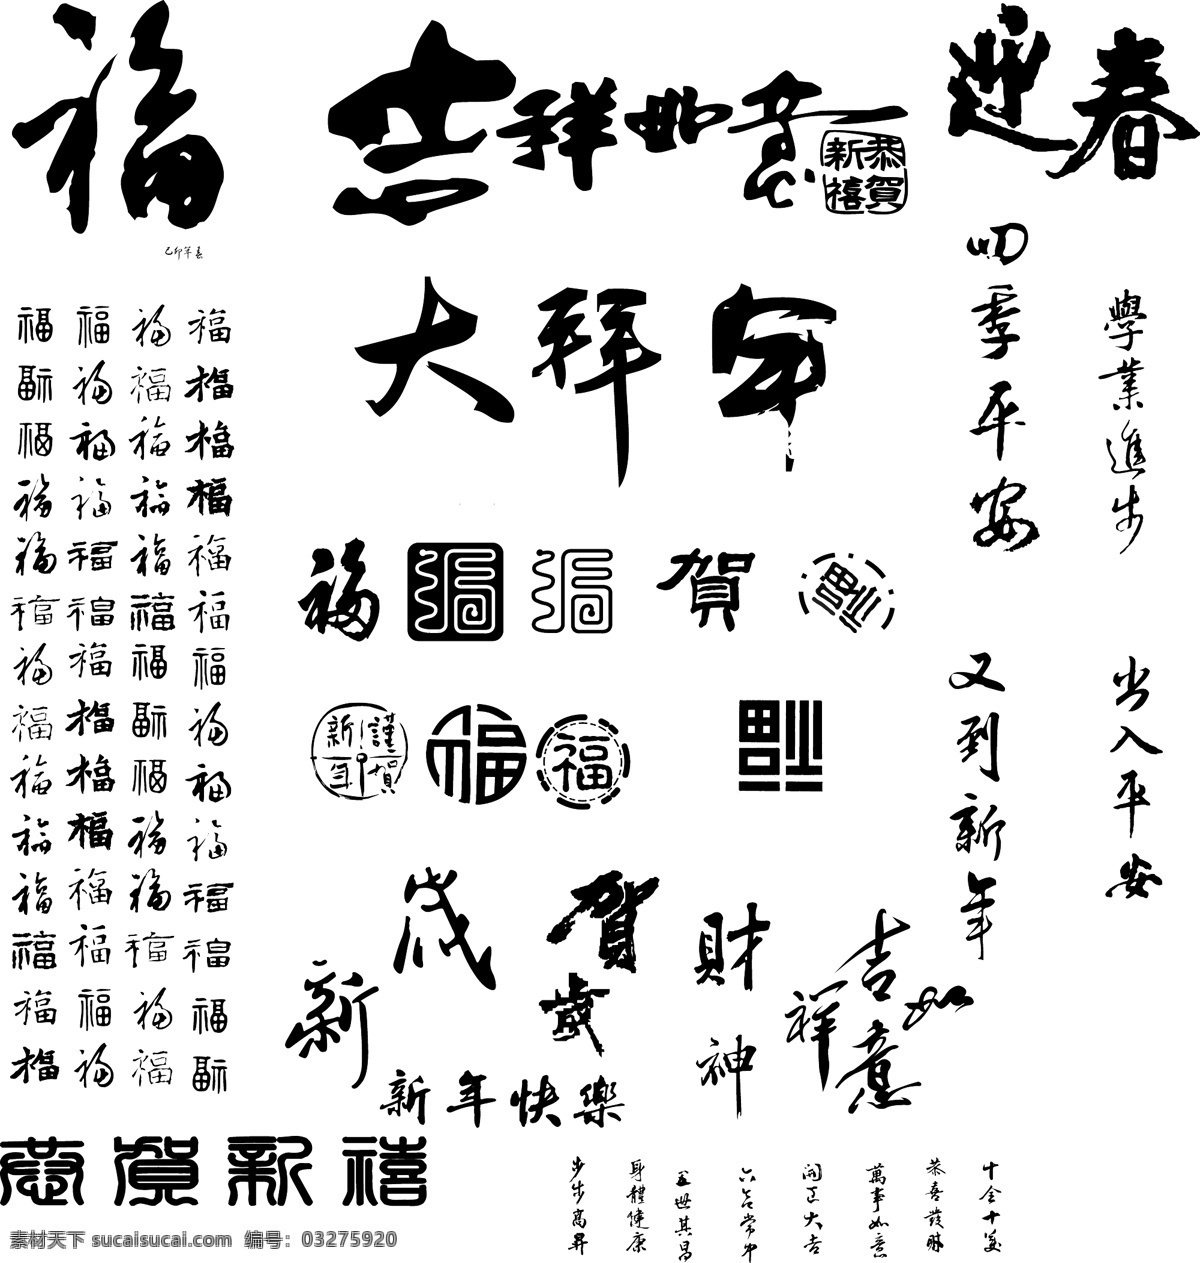 福
己卯年春
吉祥如意
恭賀新禧
迎春
大拜年
四季平安
學業進步
福 福 福 福
福 福 福 福
福 福 福 福
福 福 福 福
福 福 福 福
福 福 福 福
福 福 福 福
福 福 福 福
福 福 福 福
福 福 福 福
福 福 福 福
福 福 福 福
福 福 福 福
福 福 福 福
福
福
福
賀
福
謹賀新年
福
福
福
又到新年
出入平安
新歲
賀歲
財神
吉祥如意
新年快樂
恭賀新禧
步步高昇
身體健康
五世其昌
六合常中
開正大吉
萬事如意
恭喜發財
十全十美
素材天下 sucaisucai.com 编号: 03275920